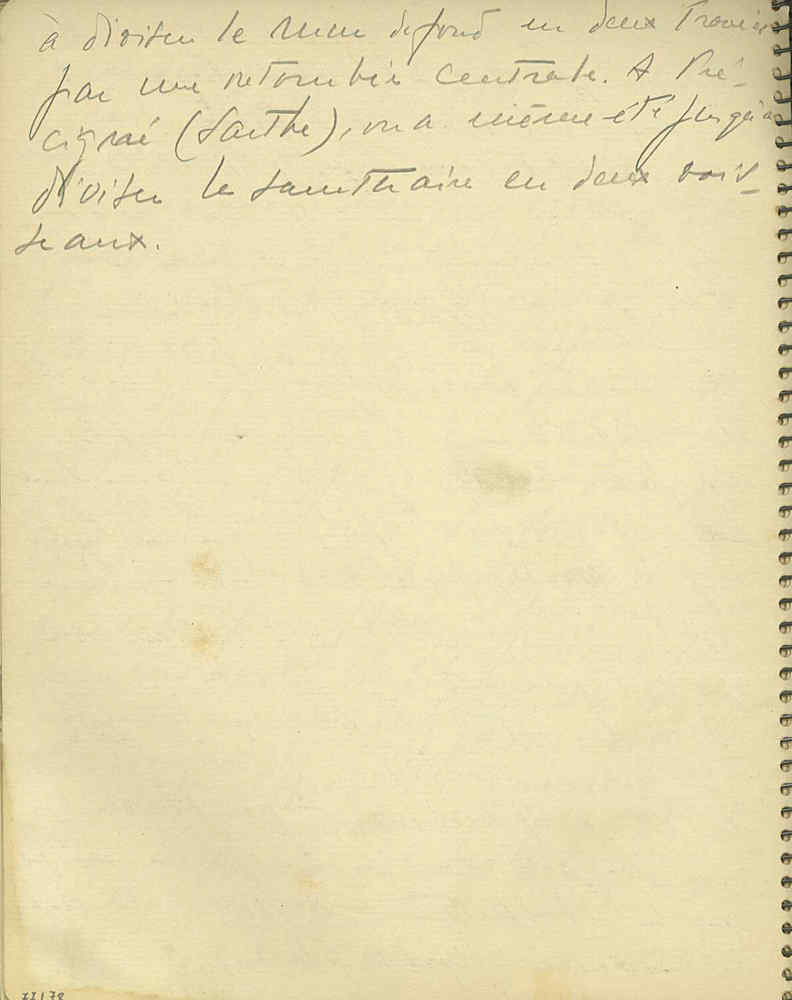 à diviser le mur de fond en deux travées
par une retombée centrale. A Pré-
cigné (Sarthe), on a même été jusqu'à
diviser le sanctuaire en deux vais-
seaux.